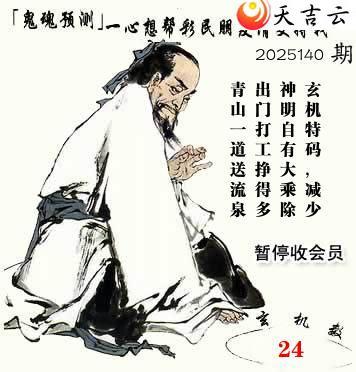 天吉云
「鬼魂预测」一心想帮彩民朋
2025140 期
玄机特码，减少
神明自有大乘除
出门打工挣得多
青山一道送流泉
暂停收会员
玄机数
24